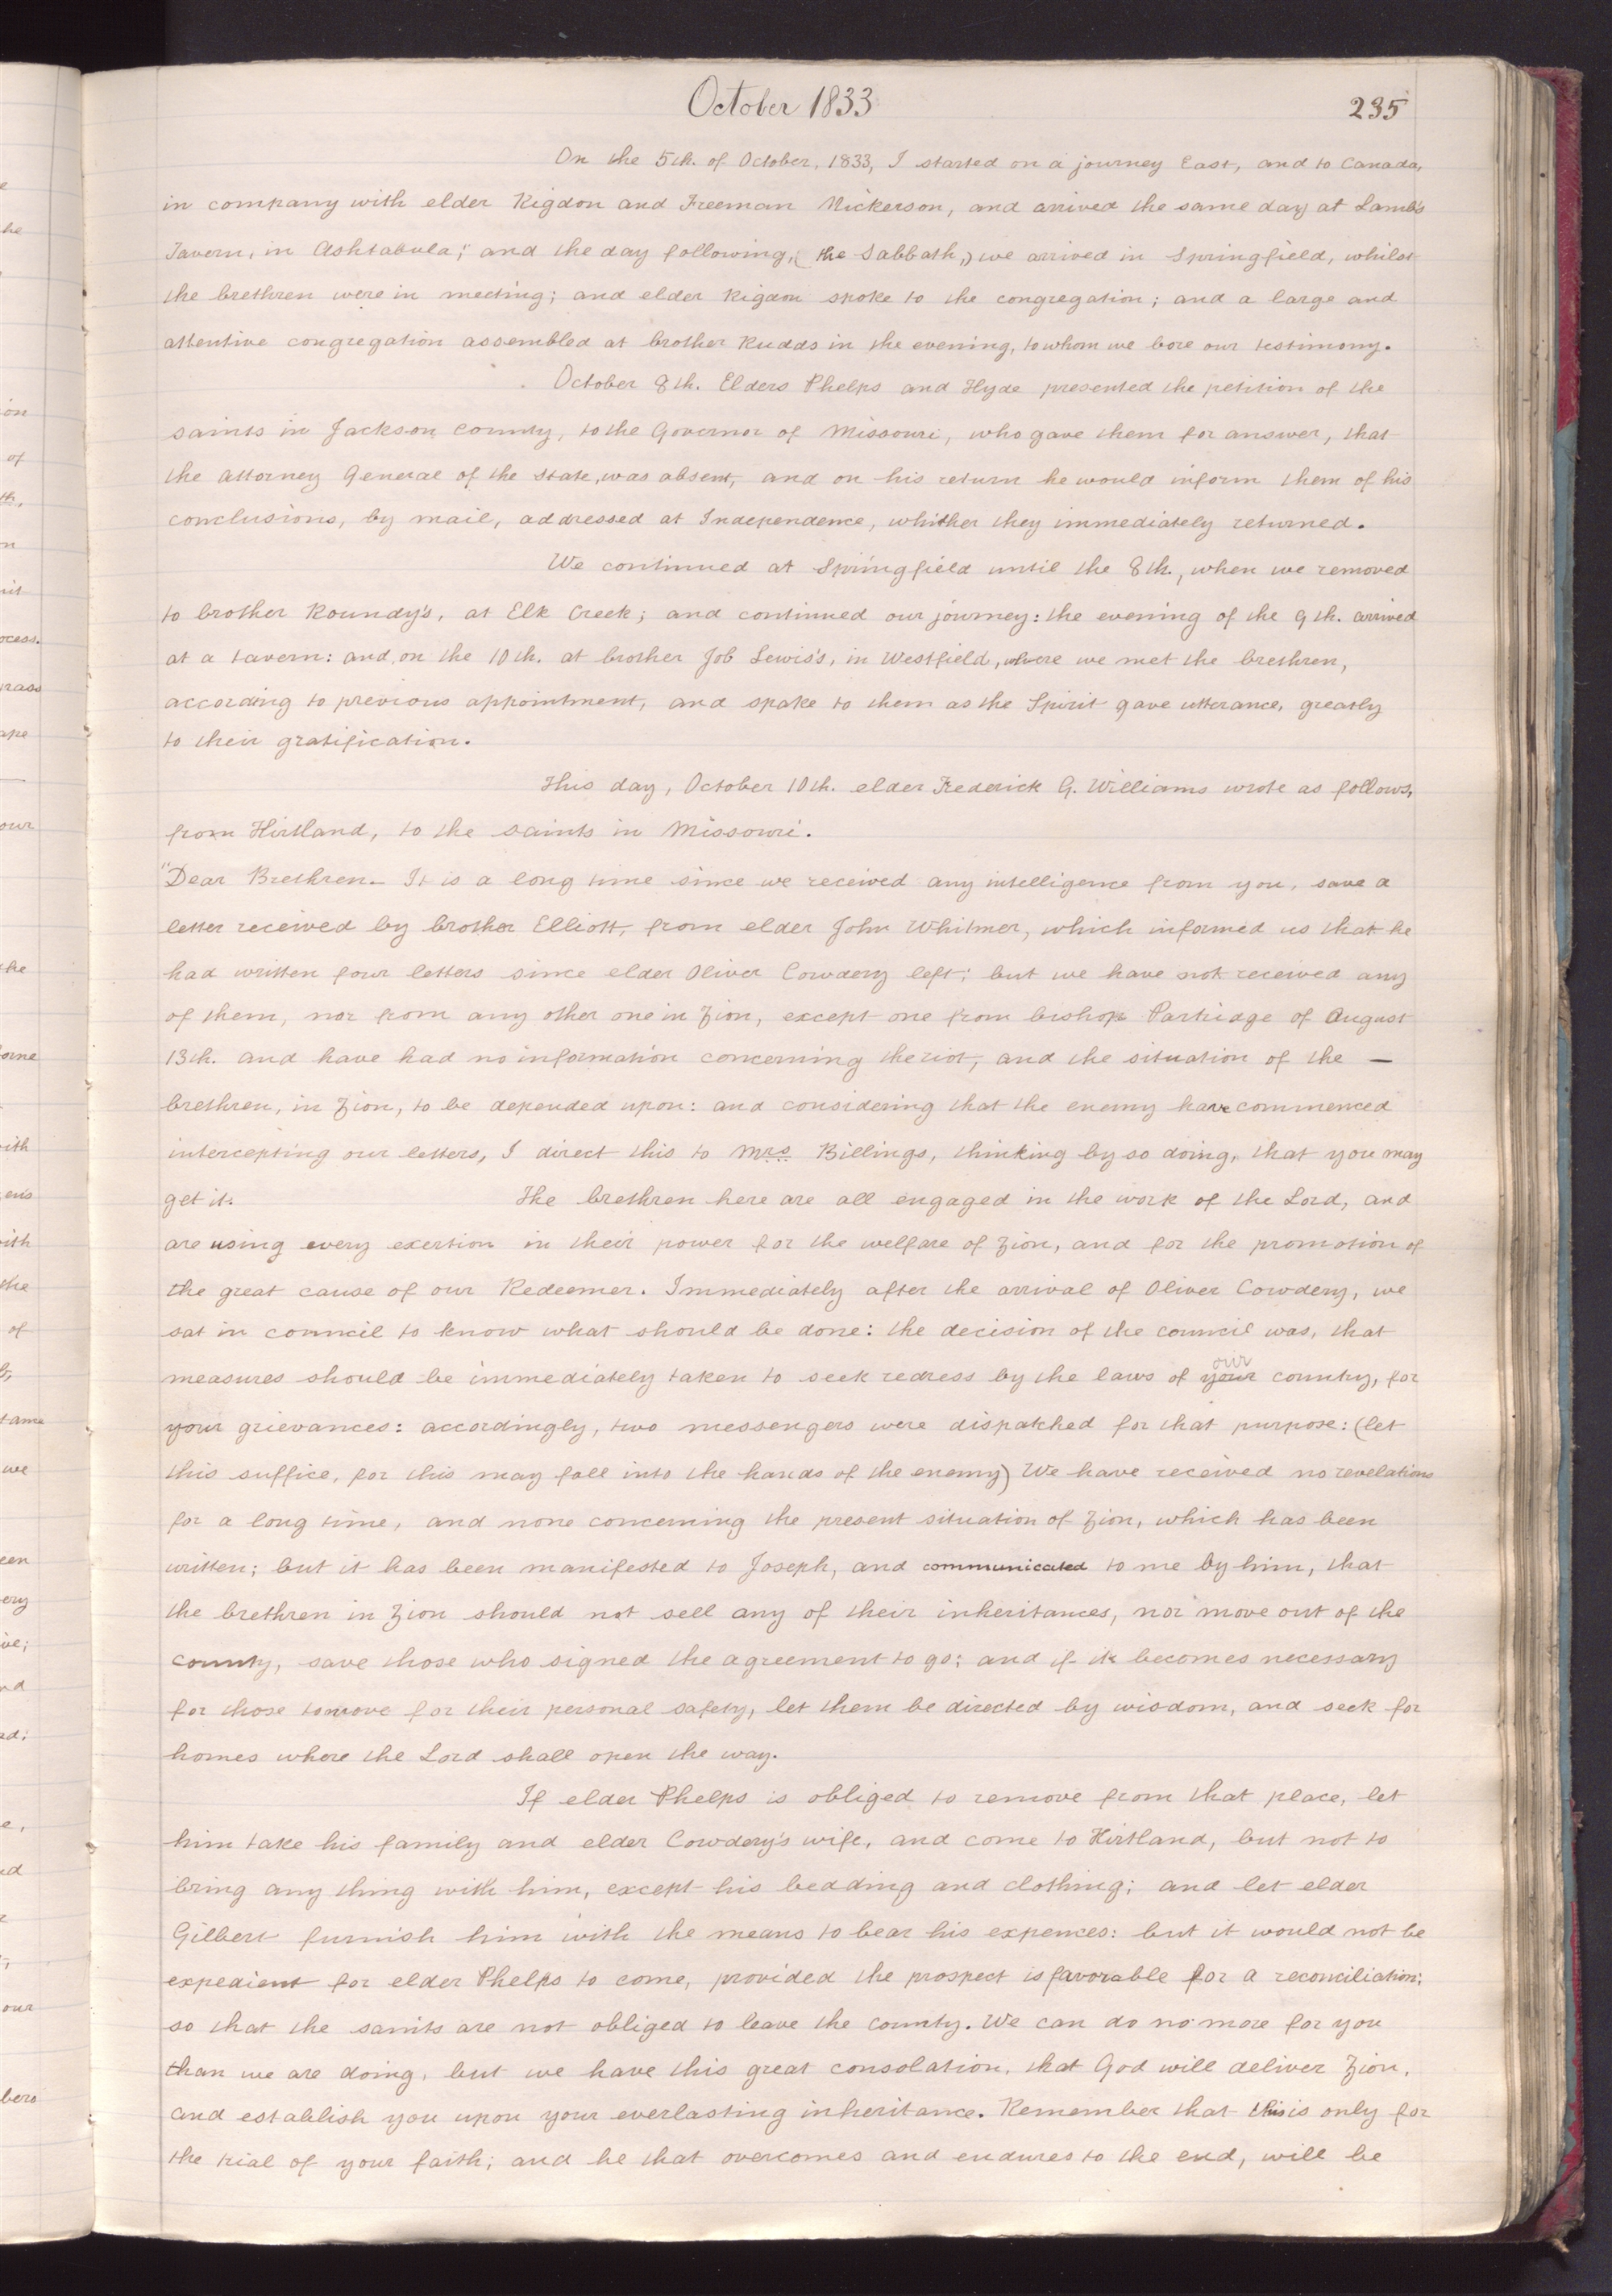 October 1833
235
On the 5th. of October, 1833, I started on a journey East, and to Canada,
in company with elder Rigdon and Freeman Nickerson, and arrived the same day at Lamb's
Tavern, in Ashtabula; and the day following, (the Sabbath,) we arrived in Springfield, whilst
the brethren were in meeting; and elder Rigdon spoke to the congregation; and a large and
attentive congregation assembled at brother Rudds in the evening, to whom we bore our testimony.
October 8th. Elders Phelps and Hyde presented the petition of the
saints in Jackson County, to the Governor of Missouri, who gave them for answer, that
the Attorney General of the State, was absent, and on his return he would inform them of his
conclusions, by mail, addressed at Independence, whither they immediately returned.
We continued at Springfield until the 8th., when we removed
to brother Roundy's, at Elk Creek; and continued our journey: the evening of the 9th. arrived
at a tavern: and, on the 10th. at brother Job Lewis's, in Westfield, where we met the brethren,
according to previous appointment, and spake to them as the Spirit gave utterance, greatly
to their gratification.
This day, October 10th. elder Frederick G. Williams wrote as follows,
from Kirtland, to the saints in Missouri.
"Dear Brethren— It is a long time since we received any intelligence from you, save a
letter received by brother Elliott, from elder John Whitmer, which informed us that he
had written four letters since elder Oliver Cowdery left; but we have not received any
of them, nor from any other one in Zion, except one from bishop Partridge of August
13th. and have had no information concerning the riot, and the situation of the —
brethren, in Zion, to be depended upon: and considering that the enemy have commenced
intercepting our letters, I direct this to Mrs Billings, thinking by so doing, that you may
get it. The brethren here are all engaged in the work of the Lord, and
are using every exertion in their power for the welfare of Zion, and for the promotion of
the great cause of our Redeemer. Immediately after the arrival of Oliver Cowdery, we
sat in council to know what should be done: the decision of the council was, that
our
measures should be immediately taken to seek redress by the laws of your country, for
your grievances: accordingly, two messengers were dispatched for that purpose: (let
this suffice, for this may fall into the hands of the enemy) We have received no revelations
for a long time, and none concerning the present situation of Zion, which has been
written; but it has been manifested to Joseph, and communicated to me by him, that
the brethren in Zion should not sell any of their inheritances, nor move out of the
county, save those who signed the agreement to go; and if it becomes necessary
for those to move for their personal safety, let them be directed by wisdom, and seek for
homes where the Lord shall open the way.
If elder Phelps is obliged to remove from that place, let
him take his family and elder Cowdery's wife, and come to Kirtland, but not to
bring any thing with him, except his bedding and clothing; and let elder
Gilbert furnish him with the means to bear his expences: but it would not be
expedient for elder Phelps to come, provided the prospect is favorable for a reconciliation;
so that the saints are not obliged to leave the county. We can do no more for you
than we are doing, but we have this great consolation, that God will deliver Zion,
and establish you upon your everlasting inheritance. Remember that this is only for
the trial of your faith; and he that overcomes and endures to the end, will be